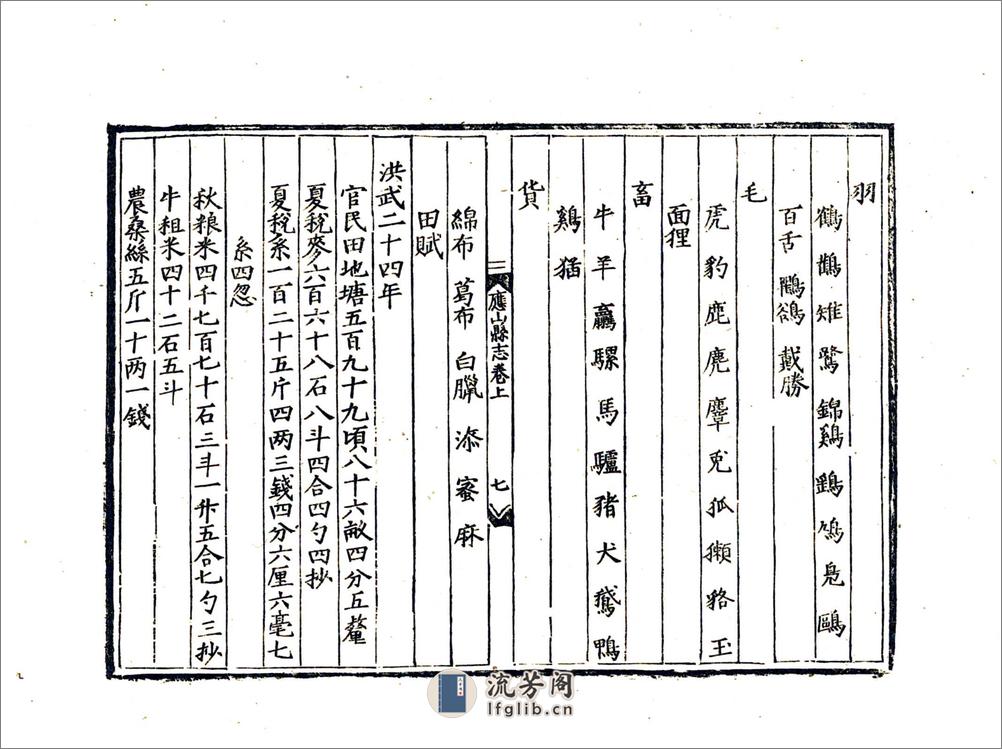 羽
鶴 鵲 雉 鷺 錦鷄 鵾 鳩 鳧 鷗
百舌 鸜鵒 戴勝
毛
虎 豹 鹿 麂 麞 兎 狐 獺 狢 玉
面狸
畜
牛 羊 驘 騾 馬 驢 猪 犬 鵞 鴨
鷄 猫
貨
綿布 葛布 白臘 漆 蜜 麻
應山縣志卷上 七
田賦
洪武二十四年
官民田地塘五百九十九頃八十六畝四分五釐
夏稅麥六百六十八石八斗四合四勺四抄
夏稅糸一百二十五斤四两三錢四分六厘六毫七
糸四忽
秋粮米四千七百七十石三斗一升五合七勺三抄
牛租米四十二石五斗
農桑絲五斤一十两一錢
流芳阁
lfglib.cn